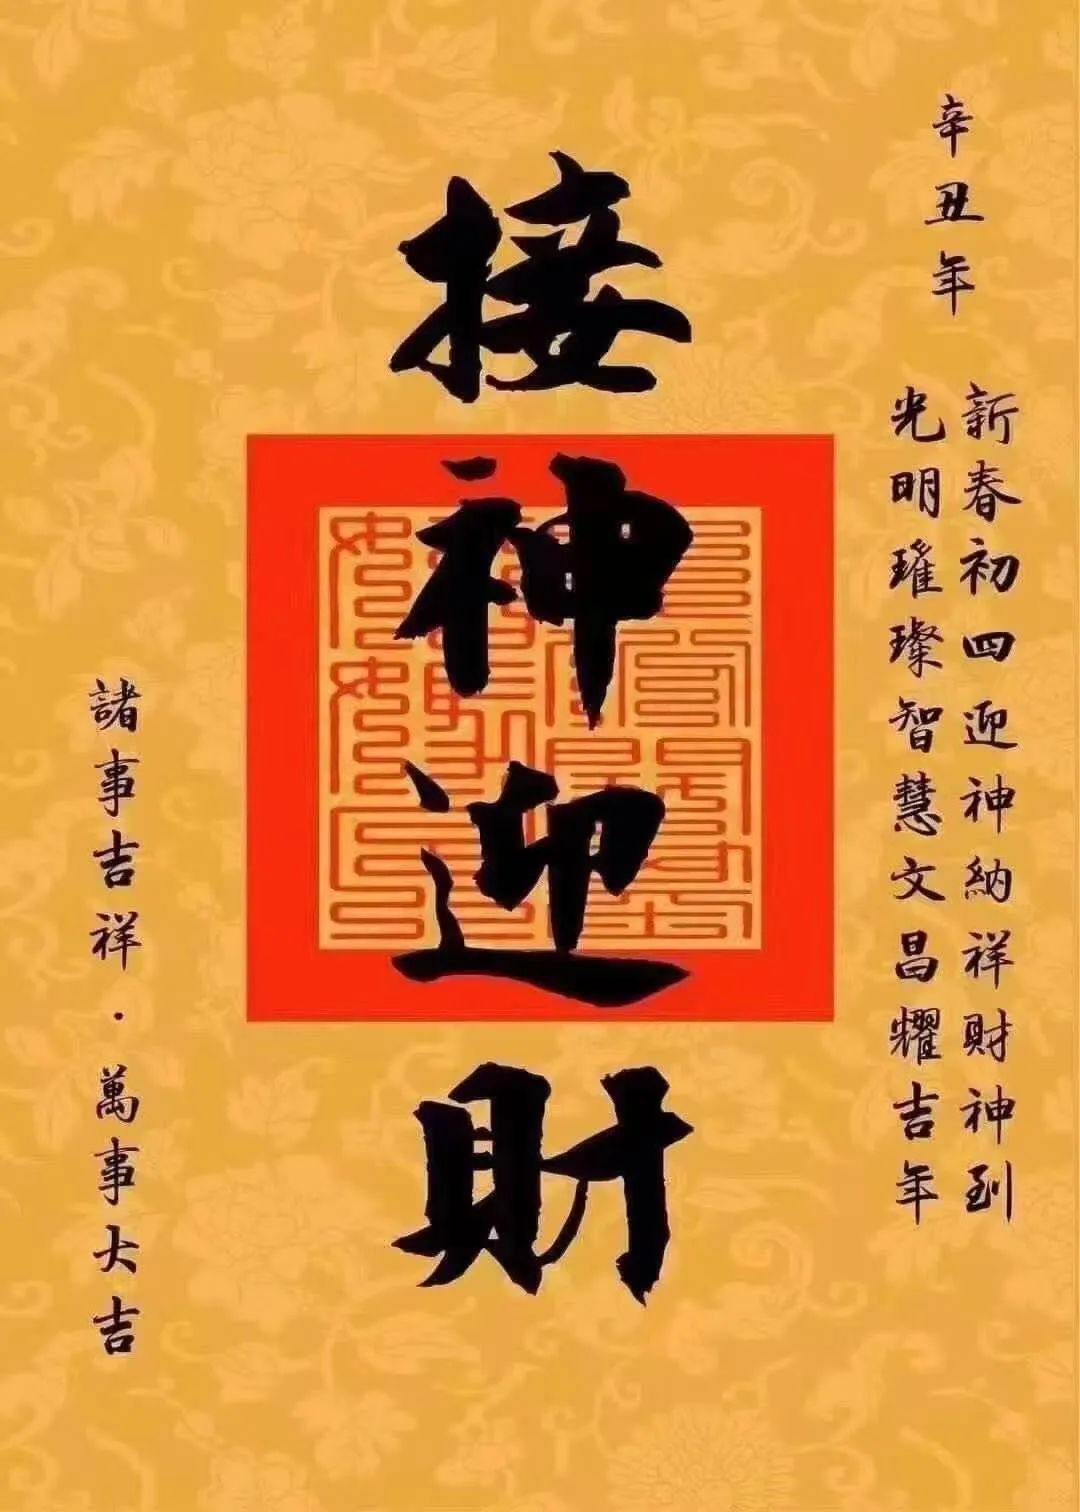 辛丑年
新春初四迎神納祥財神到
光明璀璨智慧文昌耀吉年
接神迎財
諸事吉祥·萬事大吉